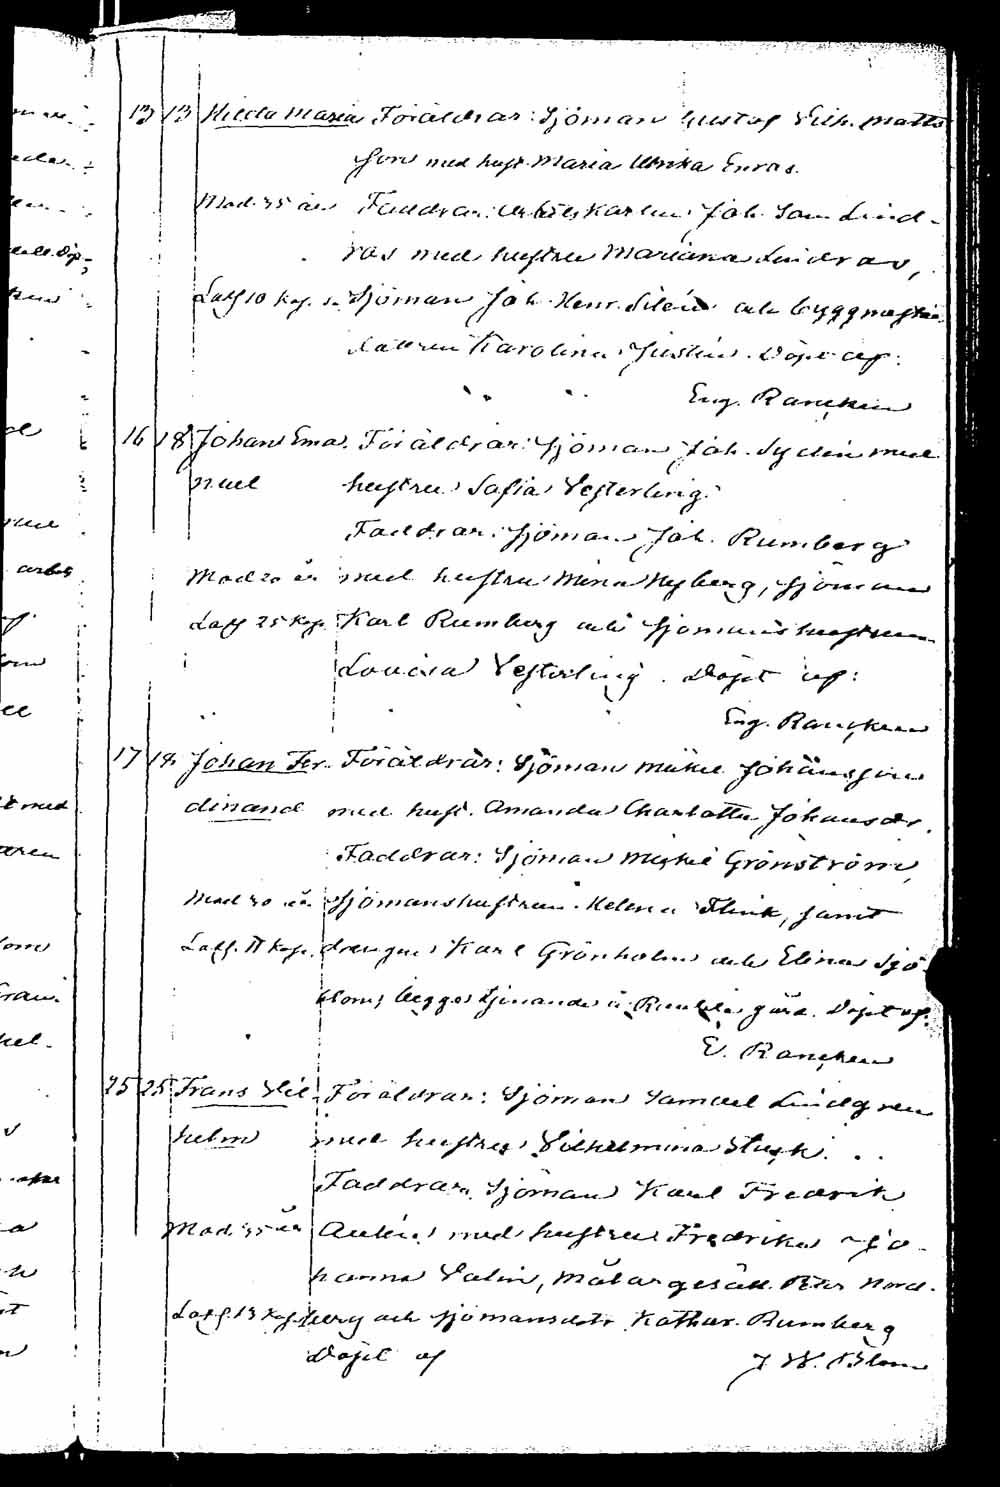 13 13 Hilda Maria Föräldrar: Sjöman Gustaf Vilh. Matts
son med hust. Maria Ulrika Enros.
Mod. 35 år Faddrar: Arbetskarlen Joh. Sam. Lind-
ros med hustru Mariana Lindros,
Lösg. 10 kop. s. Sjöman Joh. Henr. Silén och byggmästare
dottren Karolina Justin. Döpt af:
Eug. Rancken
16 18 Johan Ema- Föräldrar: Sjöman Joh. Sydén med
nuel hustru Sofia Vesterling.
Faddrar: Sjöman Joh. Rumberg
Mod 20 år med hustru Mina Nyberg, sjöman
Lösg 25 kop. Karl Rumberg och sjömanshustrun
Lovisa Vesterling. Döpt af:
Eug. Rancken
17 18 Johan Fer- Föräldrar: Sjöman Mickel Johansson
dinand med hust. Amanda Charlotta Johansdr.
Faddrar: Sjöman Mickel Grönström,
Mod 30 år Sjömanshustrun Helena Flink, samt
Lösg. 11 kop. drengen Karl Grönholm och Elina Sjö-
blom, begge tjenande å gård. Döpt af:
E. Rancken
25 25 Frans Vil- Föräldrar: Sjöman Samuel Lindgren
helm med hustru Vilhelmina
Faddrar: Sjöman Karl Fredrik
Mod. 35 år med hustru Fredrika Jo-
hanna Valin, Målargesäll Peter Nord-
Lösg. 13 kop. berg och sjömansdotr Kathar. Rumberg
Döpt af J. W. Blom